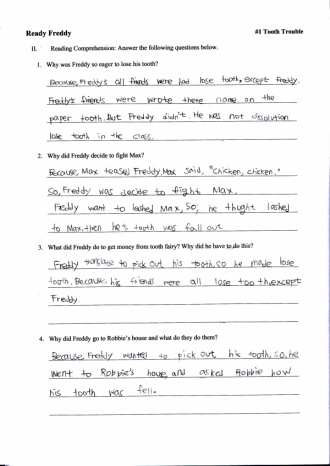 Ready Freddy #1 Tooth Trouble
II. Reading Comprehension: Answer the following questions below.
1. Why was Freddy so eager to lose his tooth?
Because, Freddy's all friends were had lose tooth, except freddy.
Freddy's friends were wrote there name on the
paper tooth. But Freddy didn't. He was not
lose tooth in the class.
2. Why did Freddy decide to fight Max?
Because, Max teased Freddy. Max said, "chicken, chicken,"
So, Freddy was decide to fight Max,
Freddy want to lashed Max, So, he thught lashed
to Max, then he's tooth was fall out
3. What did Freddy do to get money from tooth fairy? Why did he have to do this?
Freddy to pick out his tooth, so he made lose
tooth, Because, his friends were all lose tooth, except
Freddy.
4. Why did Freddy go to Robbie's house and what do they do there?
Because Freddy wanted to pick out his tooth, so, he
went to Robbie's house, and asked Robbie how
his tooth was fell.